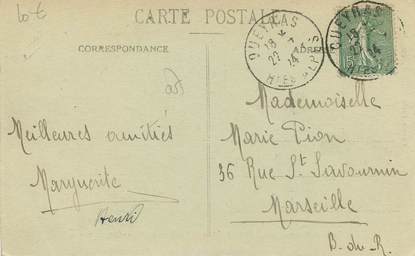 lot
CARTE POSTALE
CORRESPONDANCE
ADRESSE
QUEYRAS
18 *
27 7
14
Htes ALPES
QUEYRAS
18
27 7
14
Meilleures amitiés
Marguerite
Henri
Mademoiselle
Marie Pion
36 Rue St Savournin
Marseille
B. du. R.